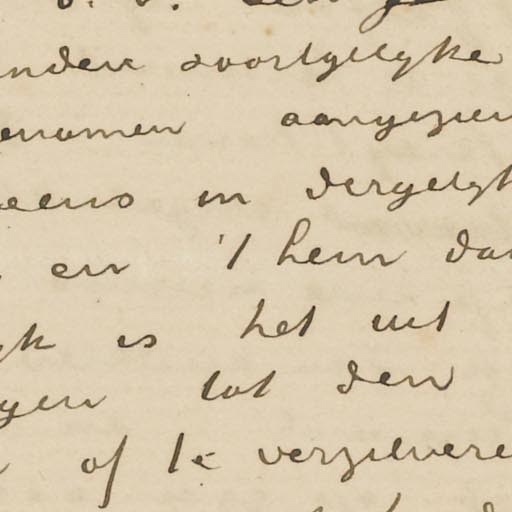 nden soortgelyke
enomen aangezien
eens in dergelyk
en 't hem dan
yk is het uit
gen tot den
of te verzilvere